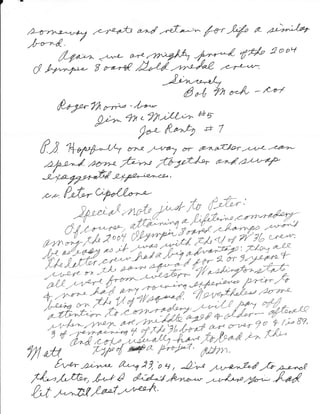 someway create and retain for life a similar
bond.
Again, we are mighty proud of the 2004
Olympic 8 oared Gold medal crew.
Sincerely
Bob Moch - cox
Roger Morris - bow
Jim McMillin #5
Joe Rantz #7
P.S. Hopefully one way or another we can
spend some time together and swap
exaggerated experiences.
cc Peter Cipollone
Special note just to Peter:
Of course attaining a lifetime comradery
among the 2004 Olympic 8 oared champs won't
be as easy as it was with the U of W 36 crew.
The latter crew had a big advantage: they all
were on the same squad for 2 or 3 years &
all were from western Washington state
& none had any rowing experience prior to
being on the U of W squad. Nevertheless some
attention to comradery will pay off
when men are middle aged & older - after all
3 of remaining 4 of the 36 boat are over 90 & 1 is 89.
And coxs usually have to lead in this
type of a project.
Matt
Ever since Aug 23, 04, I've wanted to send
this letter, but I didn't know where you had
lit until last week.